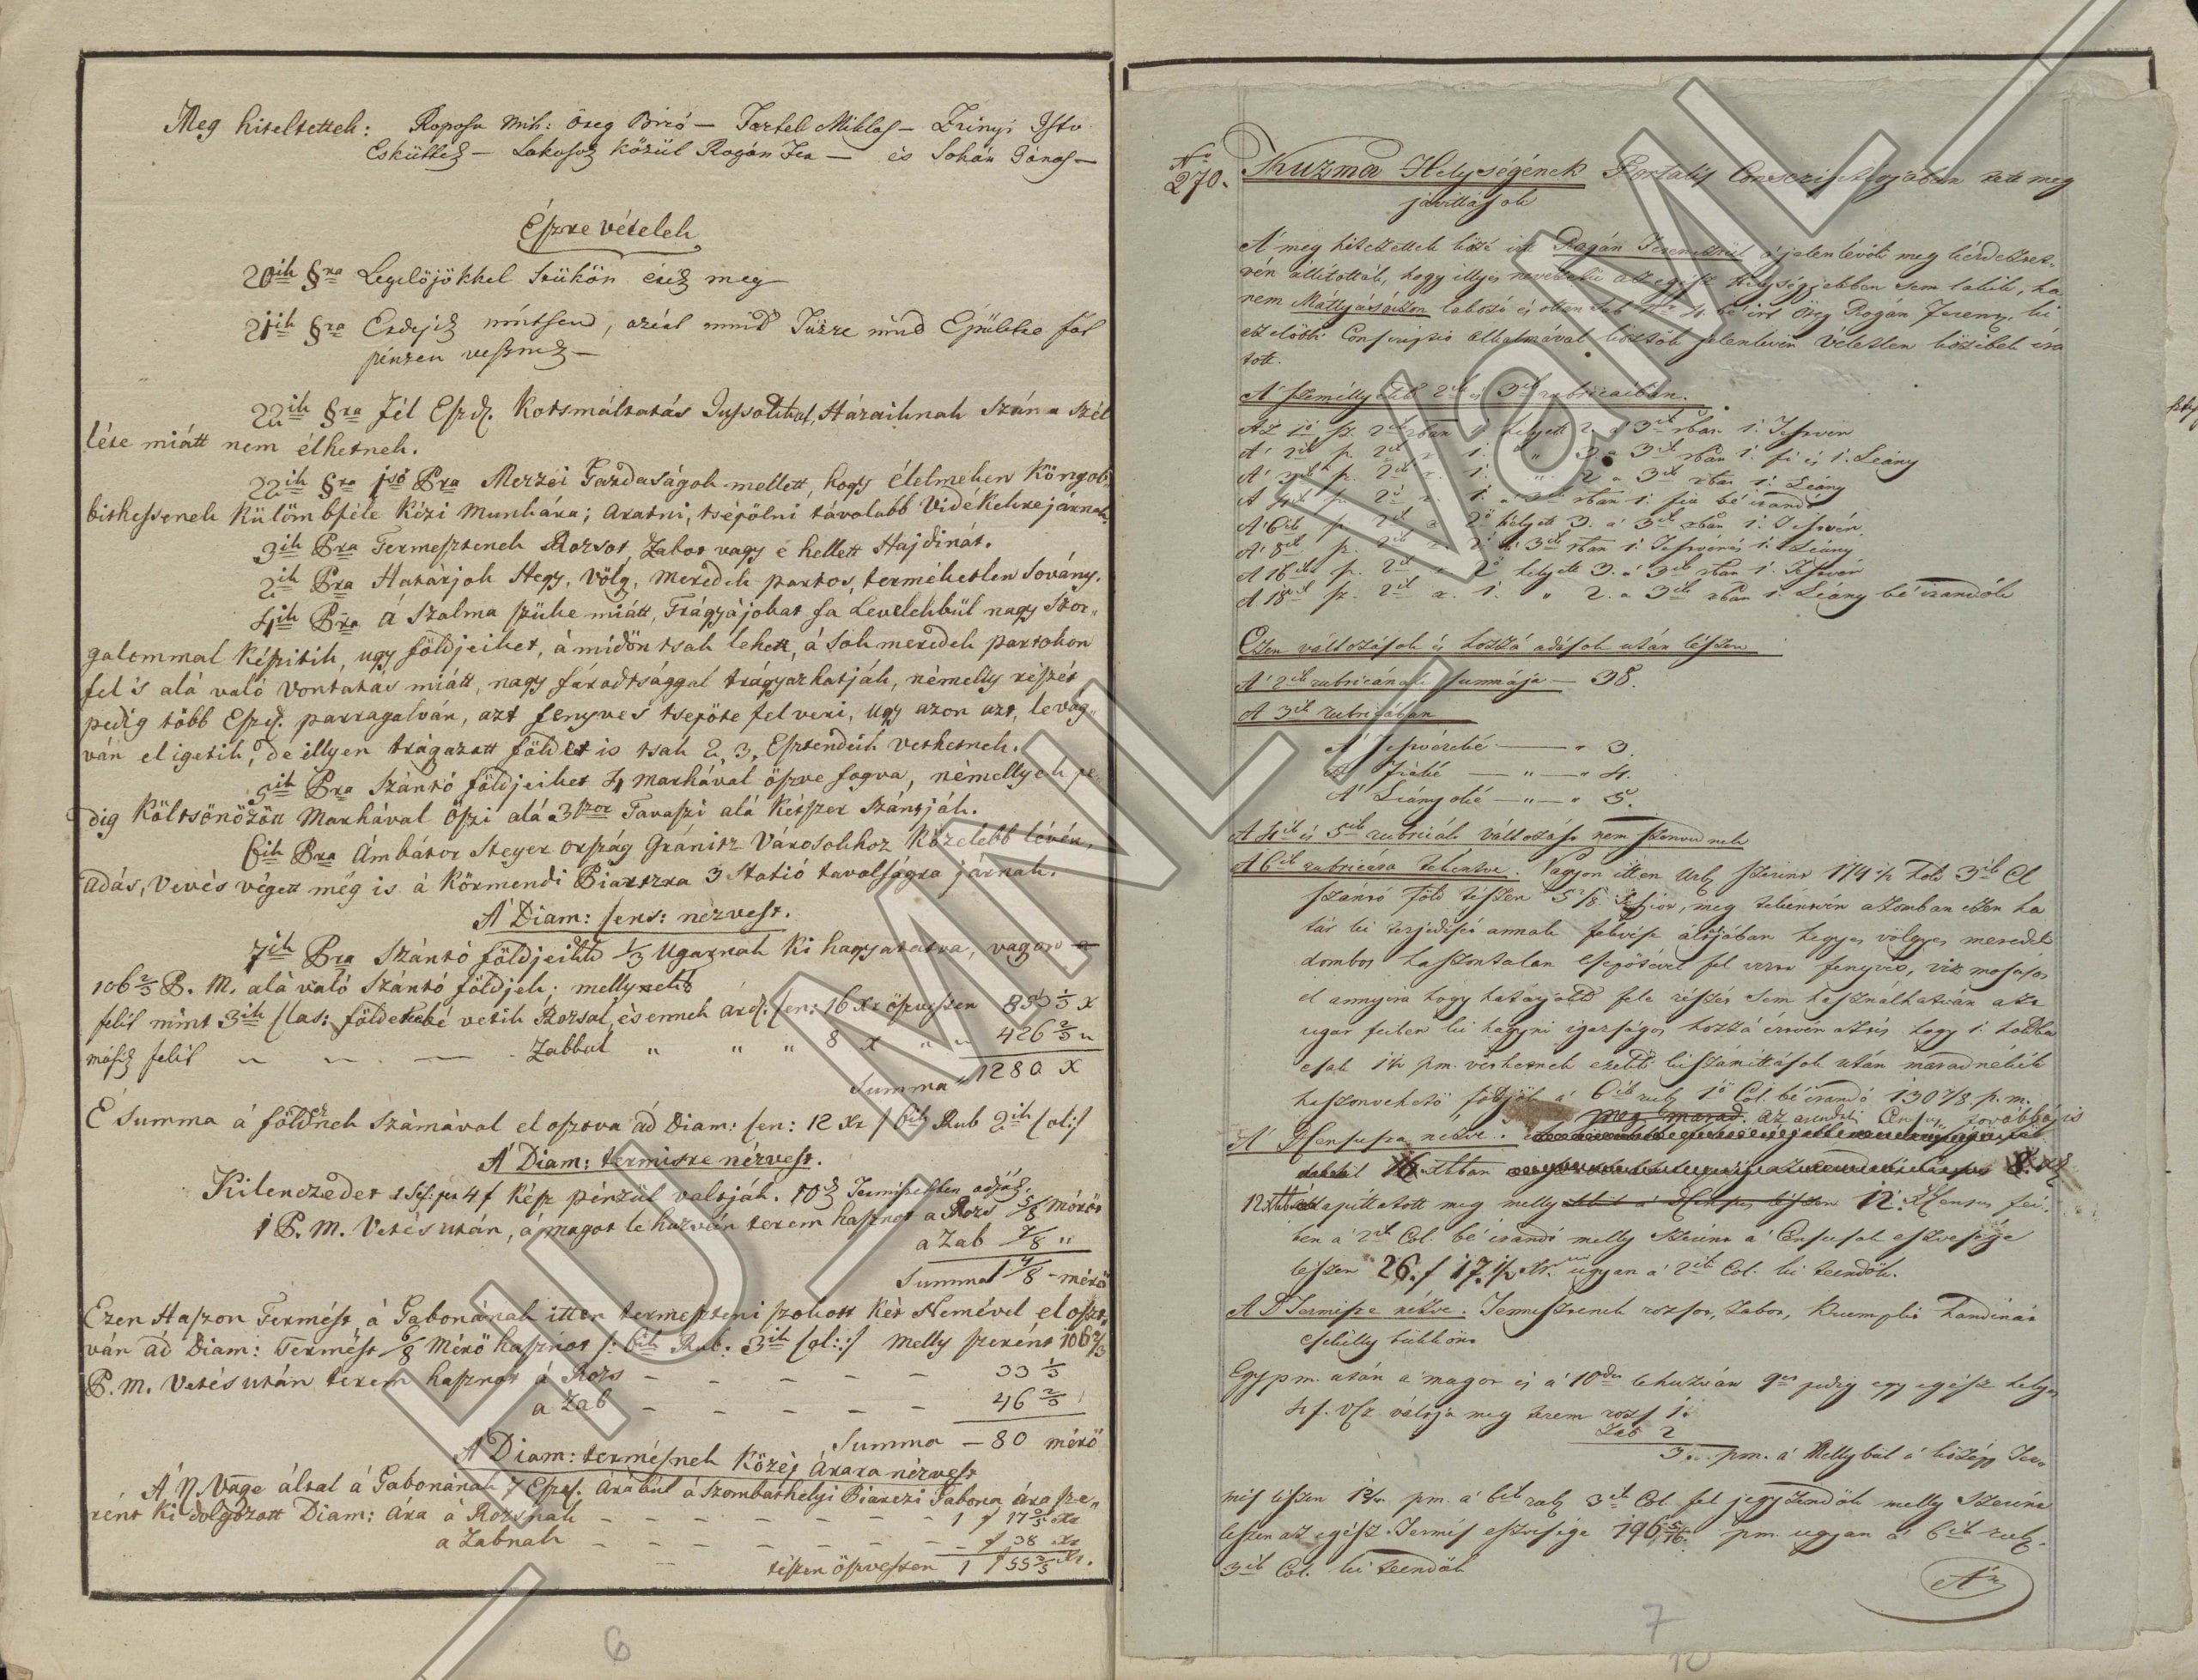 Meg hiteltettek: Roposa Mih: öreg Biró — Jartek Miklos — Zrinyi Istv
Esküttek — Lakosok közül Rogán Fer — és Sohár János —
Észre vételek
20ik §ra Legelőjökkel szűkön érik meg
21ik §ra Erdejek nintsend, azért mind Tűzre mind Épületre fát
pénzen vesznek —
22ik §ra fél Eszd. Kotsmáltatás Jussokkal, Házaiknak szána szél
léte miátt nem élhetnek.
22ik §ra 1ső Pra Mezzei Gazdaságok mellett, hogy élelmeken Köngeb
bithessenek külömbféle kézi munkára; aratni, tsépölni távolabb Vidékekre járnak.
3ik Pra Termesztenek Rozsot, Zabot vagy e hellett Hajdinát.
2ik Pra Határjok Hegy, völg, meredek partos, terméketlen Sovány.
4ik Pra á Szalma szüke miátt, Trágyájokat fa Levelekbül nagy szor„
galommal készitik, ugy földjeiket, ámidőn tsak lehett, á sok meredek partokon
fel 's alá való vontatás miátt, nagy fáradtsággal trágyazhatják, némelly részét
pedig több Eszd. parragalván, azt fenyves tsepőte fel veri, ugy azon azt, levág„
ván el igetik, de illyen trágyazott földet is tsak 2, 3, Esztendeik vethetnek.
5ik Pra Szántó földjeiket 4 marhával öszve fogva, némellyek pe„
dig költsönözött Marhával Öszi alá 3szor Tavaszi alá kétszer szántják.
6ik Pra Ámbátor Steyer ország Gránitz Városokhoz közelebb lévén,
adás, vevés végett még is á Körmendi Piatzra 3 Statió tavolságra járnak.
A' Diam: Cens: nézvést.
7ik Pra Szántó földjeikbű 1/3 Ugarnak ki hagyatatva, vagyon a
106 2/3 P. M. alá való Szántó földjek; mellynek
felit mint 3ik Clas: földekké vetik Rozsal, és ennek árd. Cen: 16 xr öszvessen 853 1/3 x
másik felit „ „ — Zabbal „ „ „ 8 x „ „ 426 2/3 „
Summa 1280 x
E' Summa á földnek számával el osztva ád Diam: Cen: 12 xr / 6ik Rub 2ik Col:/
A' Diam: termisre nézvést.
Kilenczedet 1 Ses: per 4 f kész pénzül valtják. 10dik Termiszetben adják.
1 P. M. Vetés után, á magot le huzván terem hasznot a Rozs 5/8 Mérőt
a Zab 7/8 „
Summa 1 4/8 - mérő
Ezen Haszon Termést á Gabonának itten termeszteni szokott két Nemével el oszt„
ván ád Diam: Termést 6/8 Mérő hasznot /: 6ik Rub: 3ik Col::/ Melly szerént 106 2/3
P. M. Vetés után terem hasznot á Rozs — — — — — 33 1/3
a Zab — — — — — 46 2/3
Summa — 80 mérő
A' Diam: termésnek közép Árára nézvést
A' N. Vgye által á Gabonának 7 Eszd. Árábúl á Szombathelyi Piarczi Gabona ára sze„
rént ki dolgozott Diam: Ára á Rozsnak — — — — — 1 f 17 3/5 xr
a Zabnak — — — — — — f 38 xr
tészen öszvessen 1 f 55 3/5 xr.
6
No
270. Kuzma Helységének Portalis Conscriptiojában tett meg
jovittások
A' meg hitelettek közé irt Rogán Ferencztrül á jelenlévők meg kérdeztet„
vén állitották, hogy illyen nevezetű az egész Helységjekben sem lakik, ha
nem Máttyásócon lakozó és ottan sub Nro 4 bé irt Öreg Rogán Ferencz, ki
az előbbi Conscriptio alkalmával köztök jelenlévén Véletlen közibek ira
tott.
A' személlyek 2ik és 3ik rubricaiban.
Az 1ő sz. 2ik rban 1. helyett 2. a 3ik rban 1. Testvér
A' 2ik sz. 2ik r. 1. „ 3. a 3ik rban 1. fi és 1. Leány
A' 3ik sz. 2ik r. 1. „ 2 a 3ik rban 1. Leány
A 4ik sz. 2ik r. 1. a 3ik rban 1. fia bé irandó
A' 6ik sz. 2ik r. 2ő helyett 3. a' 3ik rban 1. Testvér.
A' 8ik sz. 2ik r. 2. a 3ik rban 1. Testvér és 1. Leány
A 16ik sz. 2ik r. 2ő helyett 3. á 3ik rban 1. Testvér
A 18ik sz. 2ik r. 1. „ 2. a 3ik rban 1. Leány bé irandók
Ezen változások és hozzá adások után lészen
A' 2ik rubricának summája — 38.
A 3ik rubricában
A' Testvéreké — „ 3.
A' Fiaké — „ — „ 4.
A' Leányoké — „ — „ 5.
A 4ik és 5ik rubricák változást nem szenvednek
A 6ik rubricára tekéntve. Vagyon itten Urb. szerint 174 1/2 hold 3ik Cl
szántó föld tészen 5 1/8 Sessiot, meg tekéntvén azomban ezen ha
tár ki terjedését annak fekvése általjában hegyes völgyes meredek
dombos haszontalan csepőtével fel verve fenyves, viz mosásos
el annyira hogy határjokk fele részét sem használhatván azt
ugar fejben ki hagyni igazságos, hozzá értvén aztis hogy 1. holdba
csak 1 1/2 pm. vethetnek ezekk kiszámittások után maradnékik
haszonvehető földjök á 6ik rub 1ő Col. bé irandó 130 7/8 p. m.
A' DCensusra nézve. meg marad az eredeti Census továbbá is
12 xrban állapittatott meg melly 12. xr Census fei„
ben á 2ik Col. bé irandó melly szerint á Censusok eszvesége
leszen 26. f 17. 1/2 xr. ugyan a' 2ik Col. ki teendők.
A D Termisre nézve. Termesztenek rozsot, zabot, krumplit handinát
csekélly bükkönt
Egy pm. után á magot és á 10det lehuzván 9et pedig egy egész helyes
4 f. Vlr váltja meg terem rozs 1.
Zab 2
3. pm. á Mellybül á közép Ter„
mis lészen 1 1/2 pm. á 6ik rub 3ik Col. fel jegyzendők melly szerint
leszen az egész Termés eszvesége 196 5/16 pm. ugyan á 6ik rub.
3ik Col. ki teendők
7
10
HU_MNL_VaML